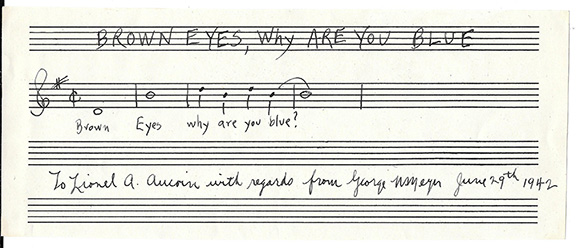 BROWN EYES, Why ARE YOU BLUE
Brown Eyes why are you blue?
To Lionel A. Aucoin with regards from George W Meyer June 29th 1942